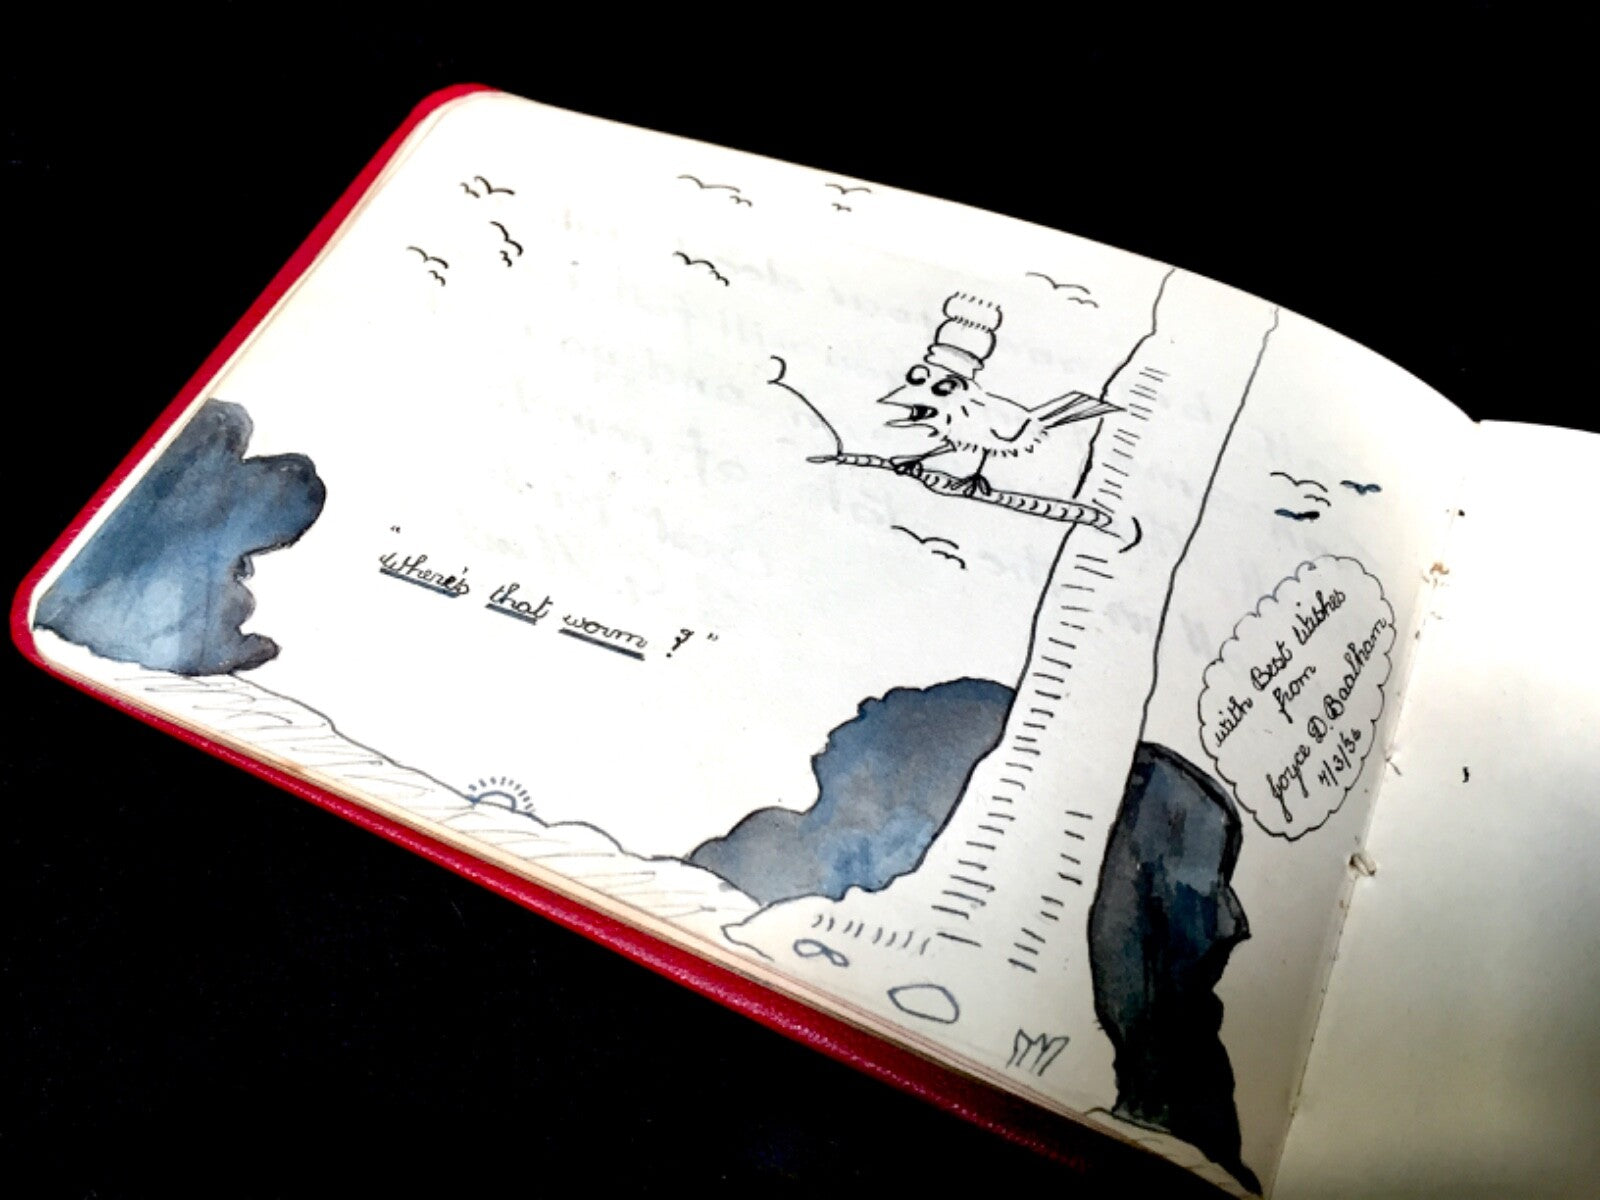 "where's that worm ?"
with Best Wishes
from
Joyce D. Baalham
7/3/36